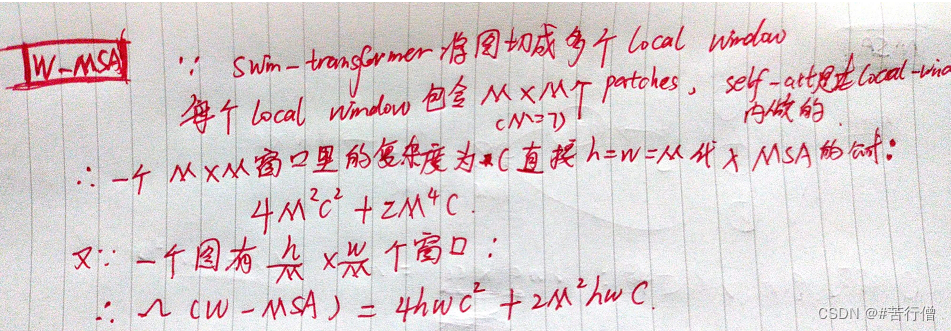 W-MSA
∵ swin-transformer 将图切成多个 local window
每个 local window 包含 M×M个 patches, self-att是在local-win
(M=7) 内做的.
∴ 一个 M×M窗口里的复杂度为 (直接 h=w=M 代入 MSA 的公式:
4M²C² + 2M⁴C.
又∵ 一个图有 h/M × w/M 个窗口:
∴ Ω (W-MSA) = 4hwC² + 2M²hwC.
CSDN @#苦行僧